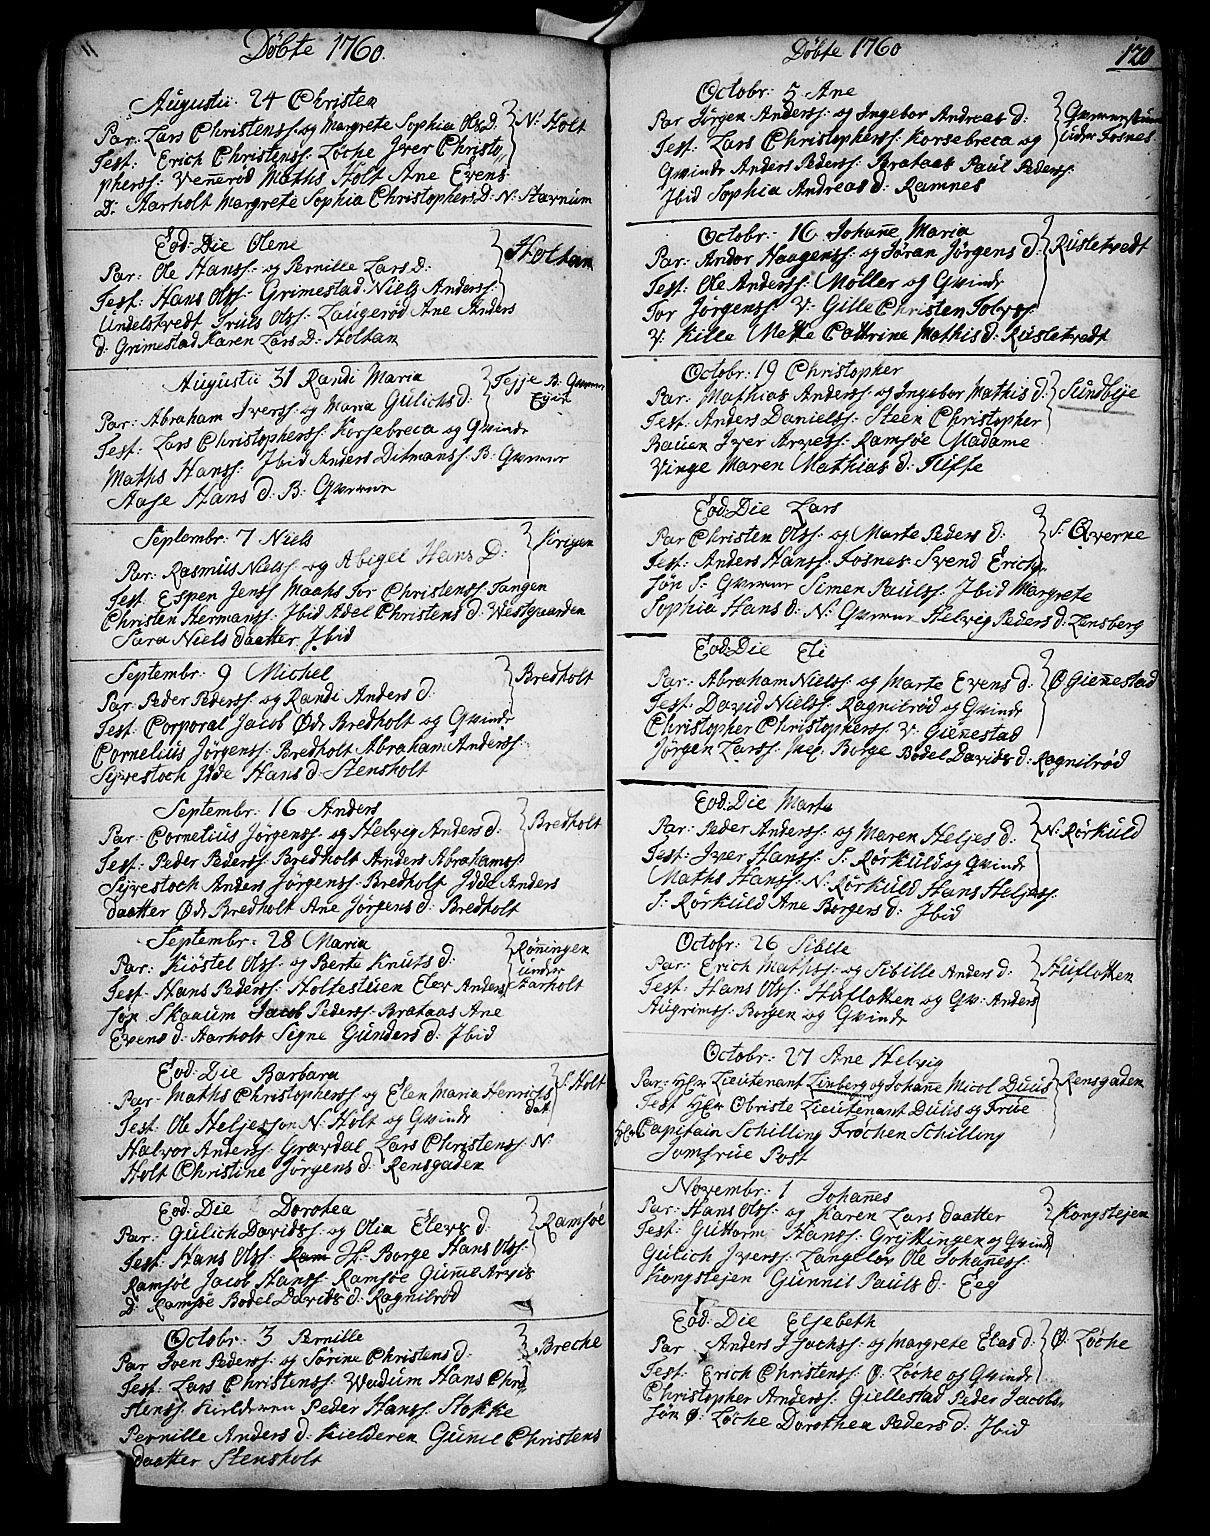 11
Döbte 1760.
Augustii. 24 Christen
Par: Lars Christenss: og Margrete Sophia Ols D: N: Holt
Test: Erich Christenss: Löche Iver Christo,,
pherss: Vennerød Maths Holt Ane Evens
D: Aarholt Margrete Sophia Christophers D: N: Stavnum
Eod: Die Oleni
Par: Ole Hanss: og Pernille Lars D: Holtan
Test: Hans Olss: Grimestad Niels Anderss:
Undelstvedt Truls Olss: Laugerød Ane Anders
d: Grimestad Karen Lars D: Holtan
Augustii 31 Randi Maria
Par: Abraham Iverss: og Maria Gulichs d:
Test: Lars Christopherss: Korsebreca og Qvinde
Maths Hanss: Ibid Anders Ditmanss: B: Qvernur
Aase Hans d: B: Qvernur
Septembr: 7 Niels
Par: Rasmus Nielss: og Abigel Hans D: Krigen
Test: Espen Jenss Maahs Tor Christenss: Tangen
Christen Hermanss: Ibid Abel Christens d: Westgaarden
Sara Niels daatter Ibid
Septembr: 9 Michel
Par: Peder Pederss: og Randi Anders d: Bredholt
Test: Corporal Jacob Ødr Bredholt og Qvinde
Cornelius Jörgenss: Bredholt Abraham Anderss:
Syvestoch Idde Hans d: Stensholt
Septembr: 16 Anders
Par: Cornelius Jörgenss: og Helvig Anders d: Bredholt
Test: Peder Pederss: Bredholt Anders Abrahamss:
Syvestoch Anders Jörgenss: Bredholt Idde Anders
daatter Ødr Bredholt Ane Jörgens d: Bredholt
Septembr: 28 Maria
Par: Kiöstel Olss: og Berte Knuts d: Röningen under Aarholt
Test: Hans Pederss: Holtestuen Elev Anders
Søn Skaaum Jacob Pederss: Brataas Ane
Evens d: Aarholt Signe Gunders d: Ibid
Eod: Die Barbara
Par: Maths Christopherss: og Elen Maria Henrichs dat: S: Holt
Test: Ole Heljesson N: Holt og Qvinde
Halvor Anderss: Gravdal Lars Christenss: N
Holt Christine Jörgens d: Rensgaden
Eod: Die Dorotea
Par: Gulich Davidss: og Olia Elevs d: Ramsøe
Test: Hans Olss: Ram H: Borge Hans Olss:
Ramsøe Jacob Hanss: Ramsøe Gunnil Arvis
D: Ramsøe Bodel Davids d: Ragnilrød
Octobr: 3 Pernille
Par Iven Pederss: og Sörine Christens d: Breche
Test: Lars Christenss: Wadum Hans Chri,,
stenss: Kielderen Peder Hanss: Stokke
Pernille Anders d: Kielderen Gunnil Christens
daatter Stensholt
Döbte 1760
120
Octobr: 5 Ane
Par Jörgen Anderss: og Ingebor Andreas d:
Test: Lars Christopherss: Korsebreca og under Fosnes
Qvinde Anders Pederss: Brataas Paul Pederss:
Ibid Sophia Andreas d: Ramnes
Octobr: 16 Johane Maria
Par: Andor Haagenss: og Jöran Jörgens d: Rustetvedt
Test: Ole Anderss: Møller og Qvinde
Tor Jörgenss: V: Gille Christen Tolvss
V: Kille Mette Cathrine Mathis d: Rustetvedt
Octobr: 19 Christopher
Par: Mathias Anderss: og Ingebor Mathis d: Sundbye
Test: Anders Danielss: Steen Christopher
Bauen Iver Arvess: Ramsøe Madame
Vinge Maren Mathias d: Tiffe
Eod: Die Lars
Par Christen Olss: og Marte Peders d: S: Qverne
Test: Anders Hanss: Fosnes Svend Erich,,
Søn S: Qvernur Simen Paulss: Ibid Margrete
Sophia Hans d: N: Qvernur Helvig Peders d: Lensberg
Eod: Die Eli
Par: Abraham Nielss: og Marte Evens d: Ø Gienestad
Test: David Nielss: Ragnilrød og Qvinde
Christopher Christopherss: V: Gienestad
Jörgen Larss: Borge Bodel Davids d: Ragnilrød
Eod: Die Marte
Par: Peder Anderss: og Maren Heljes d: N: Rörkuld
Test: Iver Hanss: S: Rörkuld og Qvinde
Maths Hanss: N: Rörkuld Hans Heljess:
S: Rörkuld Ane Borgers d: Ibid
Octobr: 26 Sibille
Par: Erich Mathss: og Sibille Anders d: Huflotten
Test: Hans Olss: Huflotten og Qv: Anders
Augrimss: Borgen og Qvinde
Octobr: 27 Ane Helvig
Par: Hr: Lieutenant Linberg og Johane Nicol Duus Rensgaden
Test Hr: Obriste Lieutenant Duus og Frue
Hr: Capitain Schilling Frøchen Schilling
Jomfrue Post
Novembr: 1 Johanes
Par: Hans Olss: og Karen Lars daatter Kongstejen
Test: Guttorm Hanss: Gryttingen og Qvinde
Gulich Iverss: Langlov Ole Johaness:
Kongstejen Gunnil Pauls d: Eeg
Eod: Die Elsebeth
Par Anders Isachss: og Margrete Elias d: Ø: Löche
Test: Erich Christenss: Ø: Löche og Qvinde
Christopher Anderss: Giellestad Peder Jacobs,,
Søn Ø: Löche Dorothea Peders d: Ibid